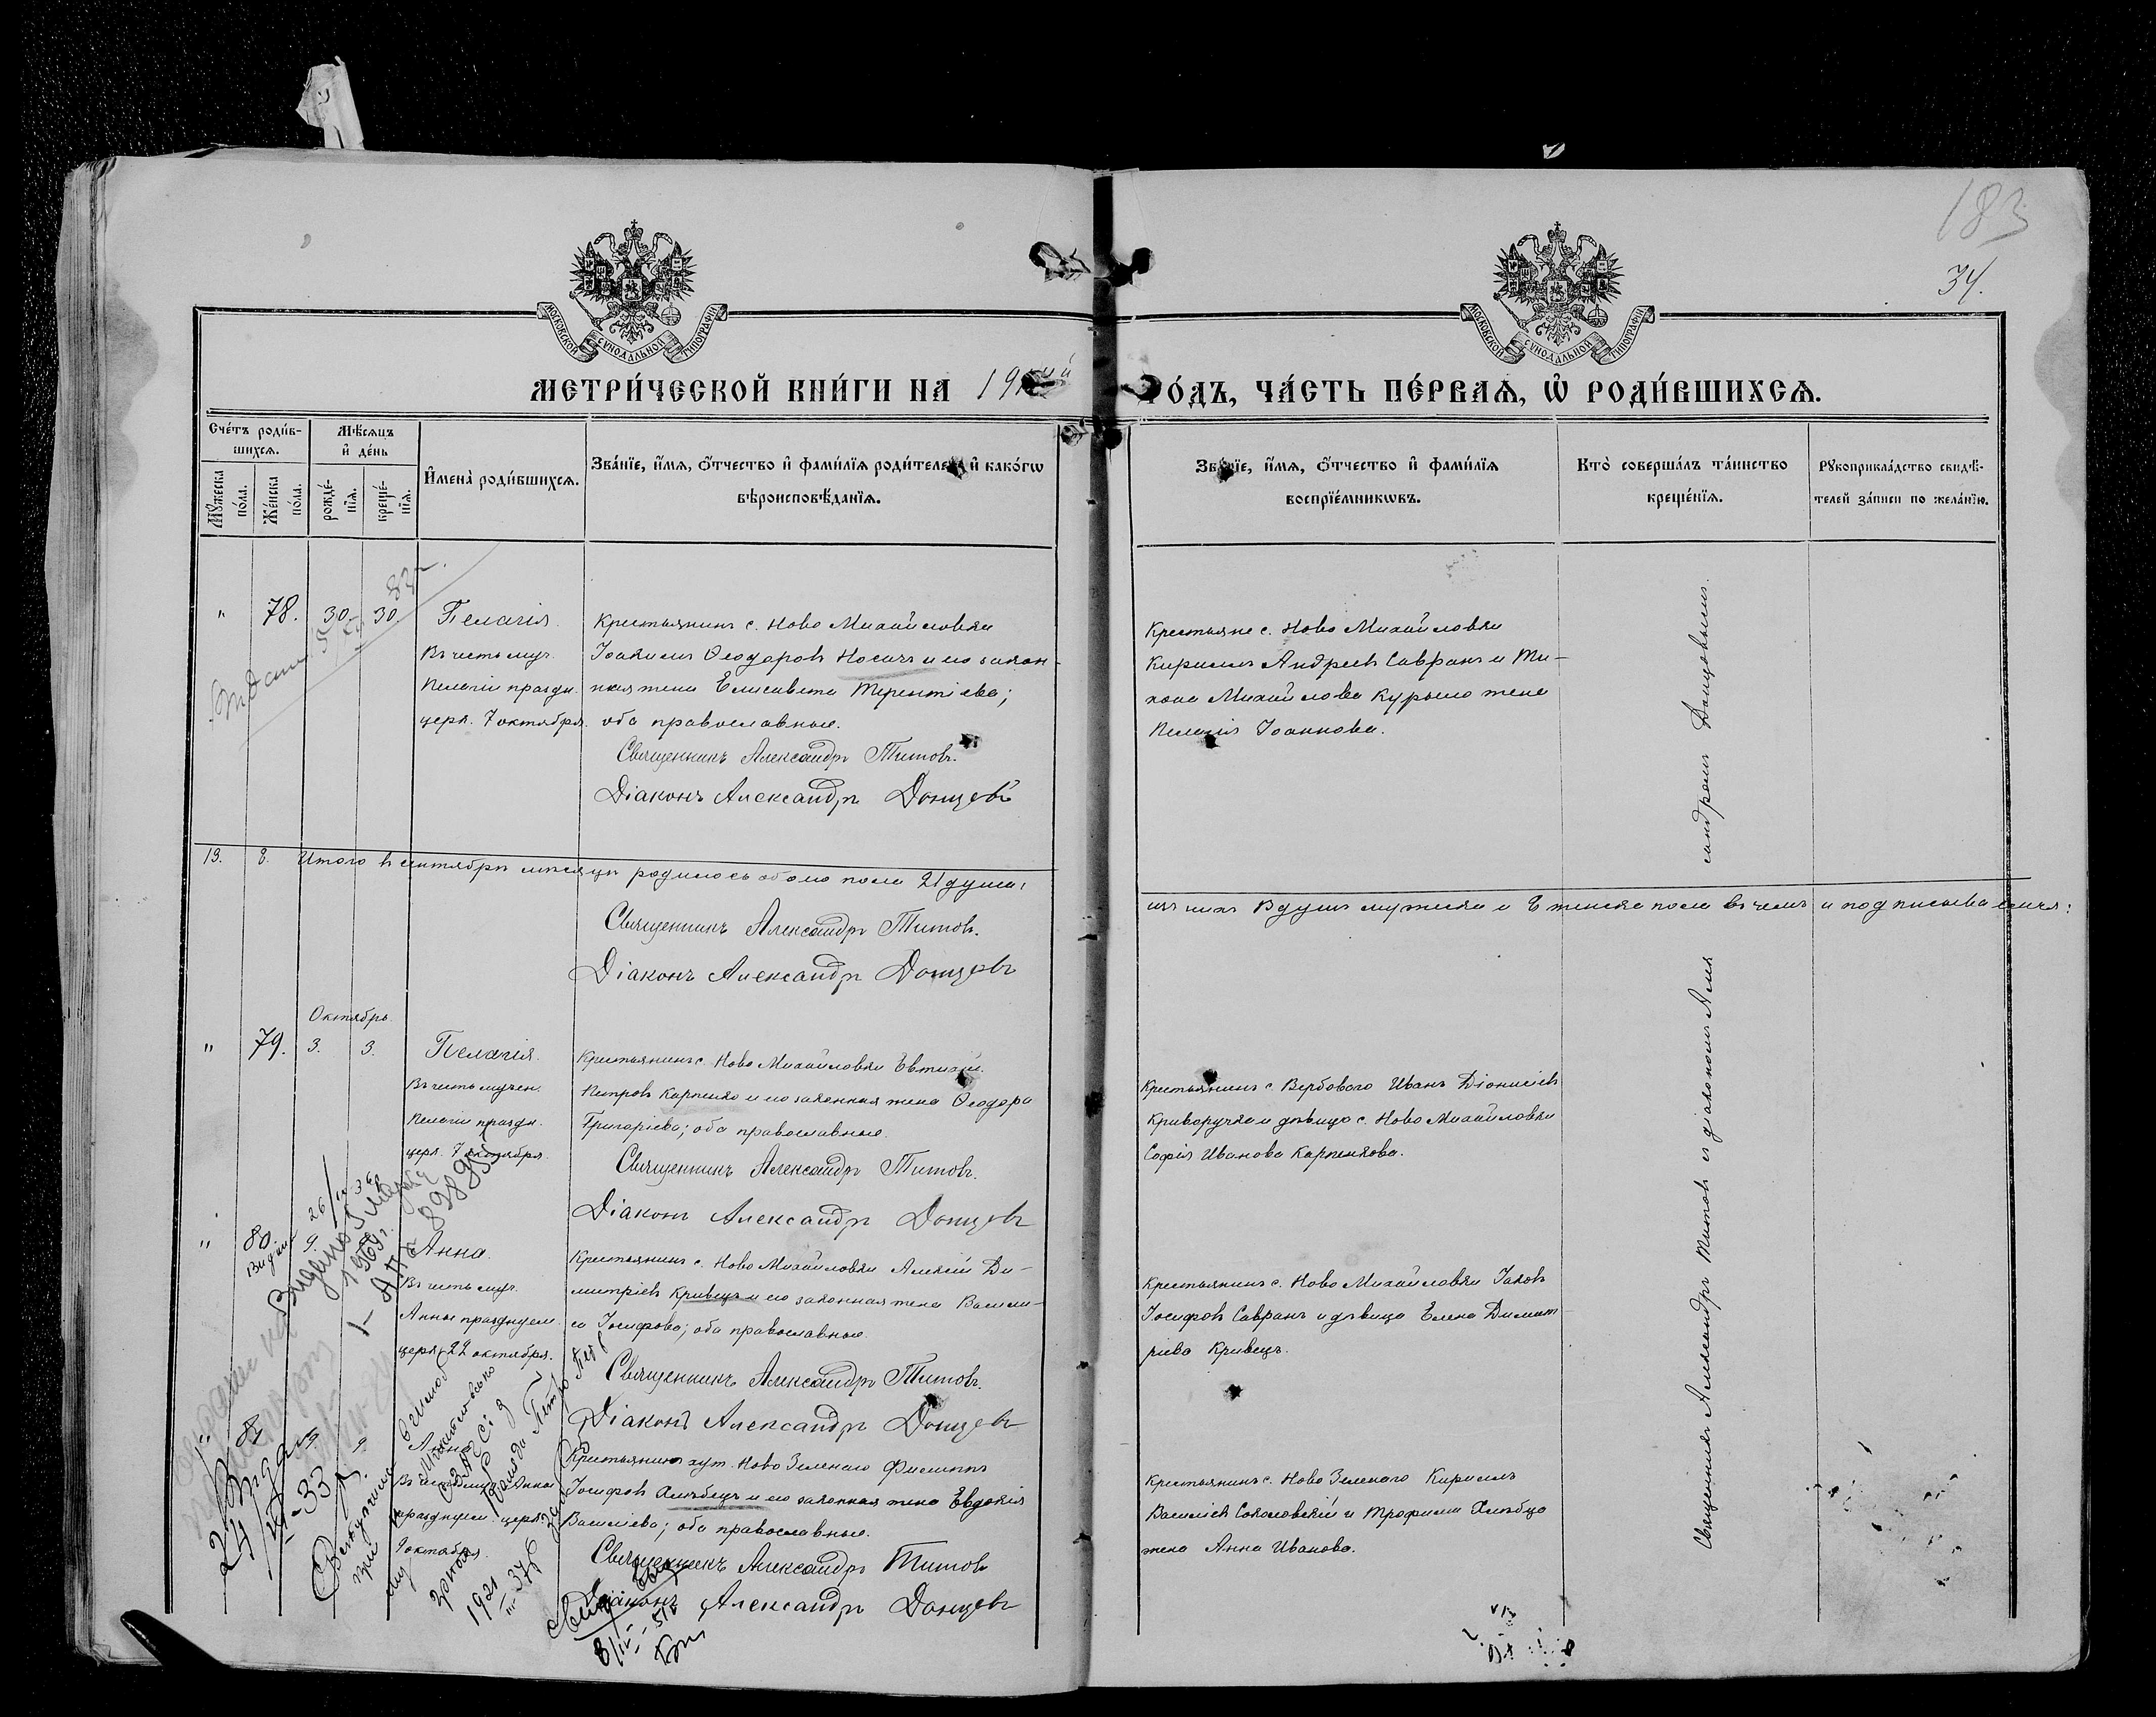 183
34.
МОСКОВСКОЙ СУНОДАЛЬНОЙ ТИПОГРАФІИ
МОСКОВСКОЙ СУНОДАЛЬНОЙ ТИПОГРАФІИ
МЕТРИ́ЧЕСКОЙ КНИ́ГИ НА 19
ГО́ДЪ, ЧА́СТЬ ПЕ́РВАѦ, Ѡ҆ РОДИ́ВШИХСѦ.
Сче́тъ роди́в-
шихсѧ.
Мꙋ́жеска по́ла.
Же́нска по́ла.
Мѣ́сѧцъ
и҆ де́нь
рожде́-
нїѧ.
креще́-
нїѧ.
И҆мена̀ роди́вшихсѧ.
Зва́нїе, и҆́мѧ, ѻ҆́тчество и҆ фами́лїѧ роди́телей, и҆ како́гѡ
вѣроисповѣ́данїѧ.
Зва́нїе, и҆́мѧ, ѻ҆́тчество и҆ фами́лїѧ
воспрїе́мникѡвъ.
Кто̀ соверша́лъ та́инство
креще́нїѧ.
Рꙋкоприкла́дство свидѣ́-
телей за́писи по жела́нїю.
" 78. 30. 30. Пелагія.
Въ честь муч.
Пелагіи праздн.
церк. 7 октября.
Крестьянинъ с. Ново Михайловки
Іоакимъ Ѳеодоровъ Носачъ и его закон-
ная жена Елисавета Терентіева;
оба православные.
Священникъ Александръ Титовъ.
Діаконъ Александръ Донцовъ
Крестьяне с. Ново Михайловки
Кириллъ Андреевъ Савранъ и Ти-
хона Михайлова Курыло жена
Пелагія Іоаннова.
13. 8. Итого въ сентябрѣ мѣсяцѣ родилось обоего пола 21 душа,
изъ нихъ 13 душъ мужска и 8 женска пола въ чемъ и подписываемся:
Священникъ Александръ Титовъ.
Діаконъ Александръ Донцовъ
Октябрь.
" 79. 3. 3. Пелагія.
Въ честь мучен.
Пелагіи праздн.
церк. 7 октября.
Крестьянинъ с. Ново Михайловки Евтихій
Петровъ Карпенко и его законная жена Ѳеодора
Григоріева; оба православные.
Священникъ Александръ Титовъ.
Діаконъ Александръ Донцовъ
Крестьянинъ с. Вербового Иванъ Діонисіевъ
Криворучко и дѣвица с. Ново Михайловки
Софія Иванова Карпенкова.
" 80. 9. Анна.
Въ честь муч.
Анны празднуем.
церк. 22 октября.
Крестьянинъ с. Ново Михайловки Алексій Ди-
митріевъ Кривецъ и его законная жена Васили-
са Іосифова; оба православные.
Священникъ Александръ Титовъ.
Діаконъ Александръ Донцовъ
Крестьянинъ с. Ново Михайловки Іаковъ
Іосифовъ Савранъ и дѣвица Елена Димит-
ріева Кривецъ.
" 81 9. 9. Анна
Въ честь муч. Анны
празднуем. церк.
9 октября.
Крестьянинъ хут. Ново Зеленаго Филиппъ
Іосифовъ Хлѣбецъ и его законная жена Евдокія
Василіева; оба православные.
Священникъ Александръ Титовъ
Діаконъ Александръ Донцовъ
Крестьянинъ с. Ново Зеленаго Кириллъ
Василіевъ Соколовскій и Трофима Хлѣбца
жена Анна Иванова.
Священникъ Александръ Титовъ съ діакономъ Але
ксандромъ Донцовымъ.